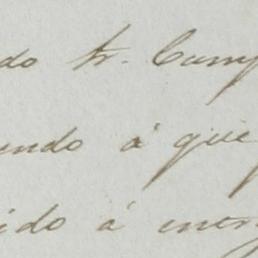 do Sr. Camp
endo á que
ido á ener